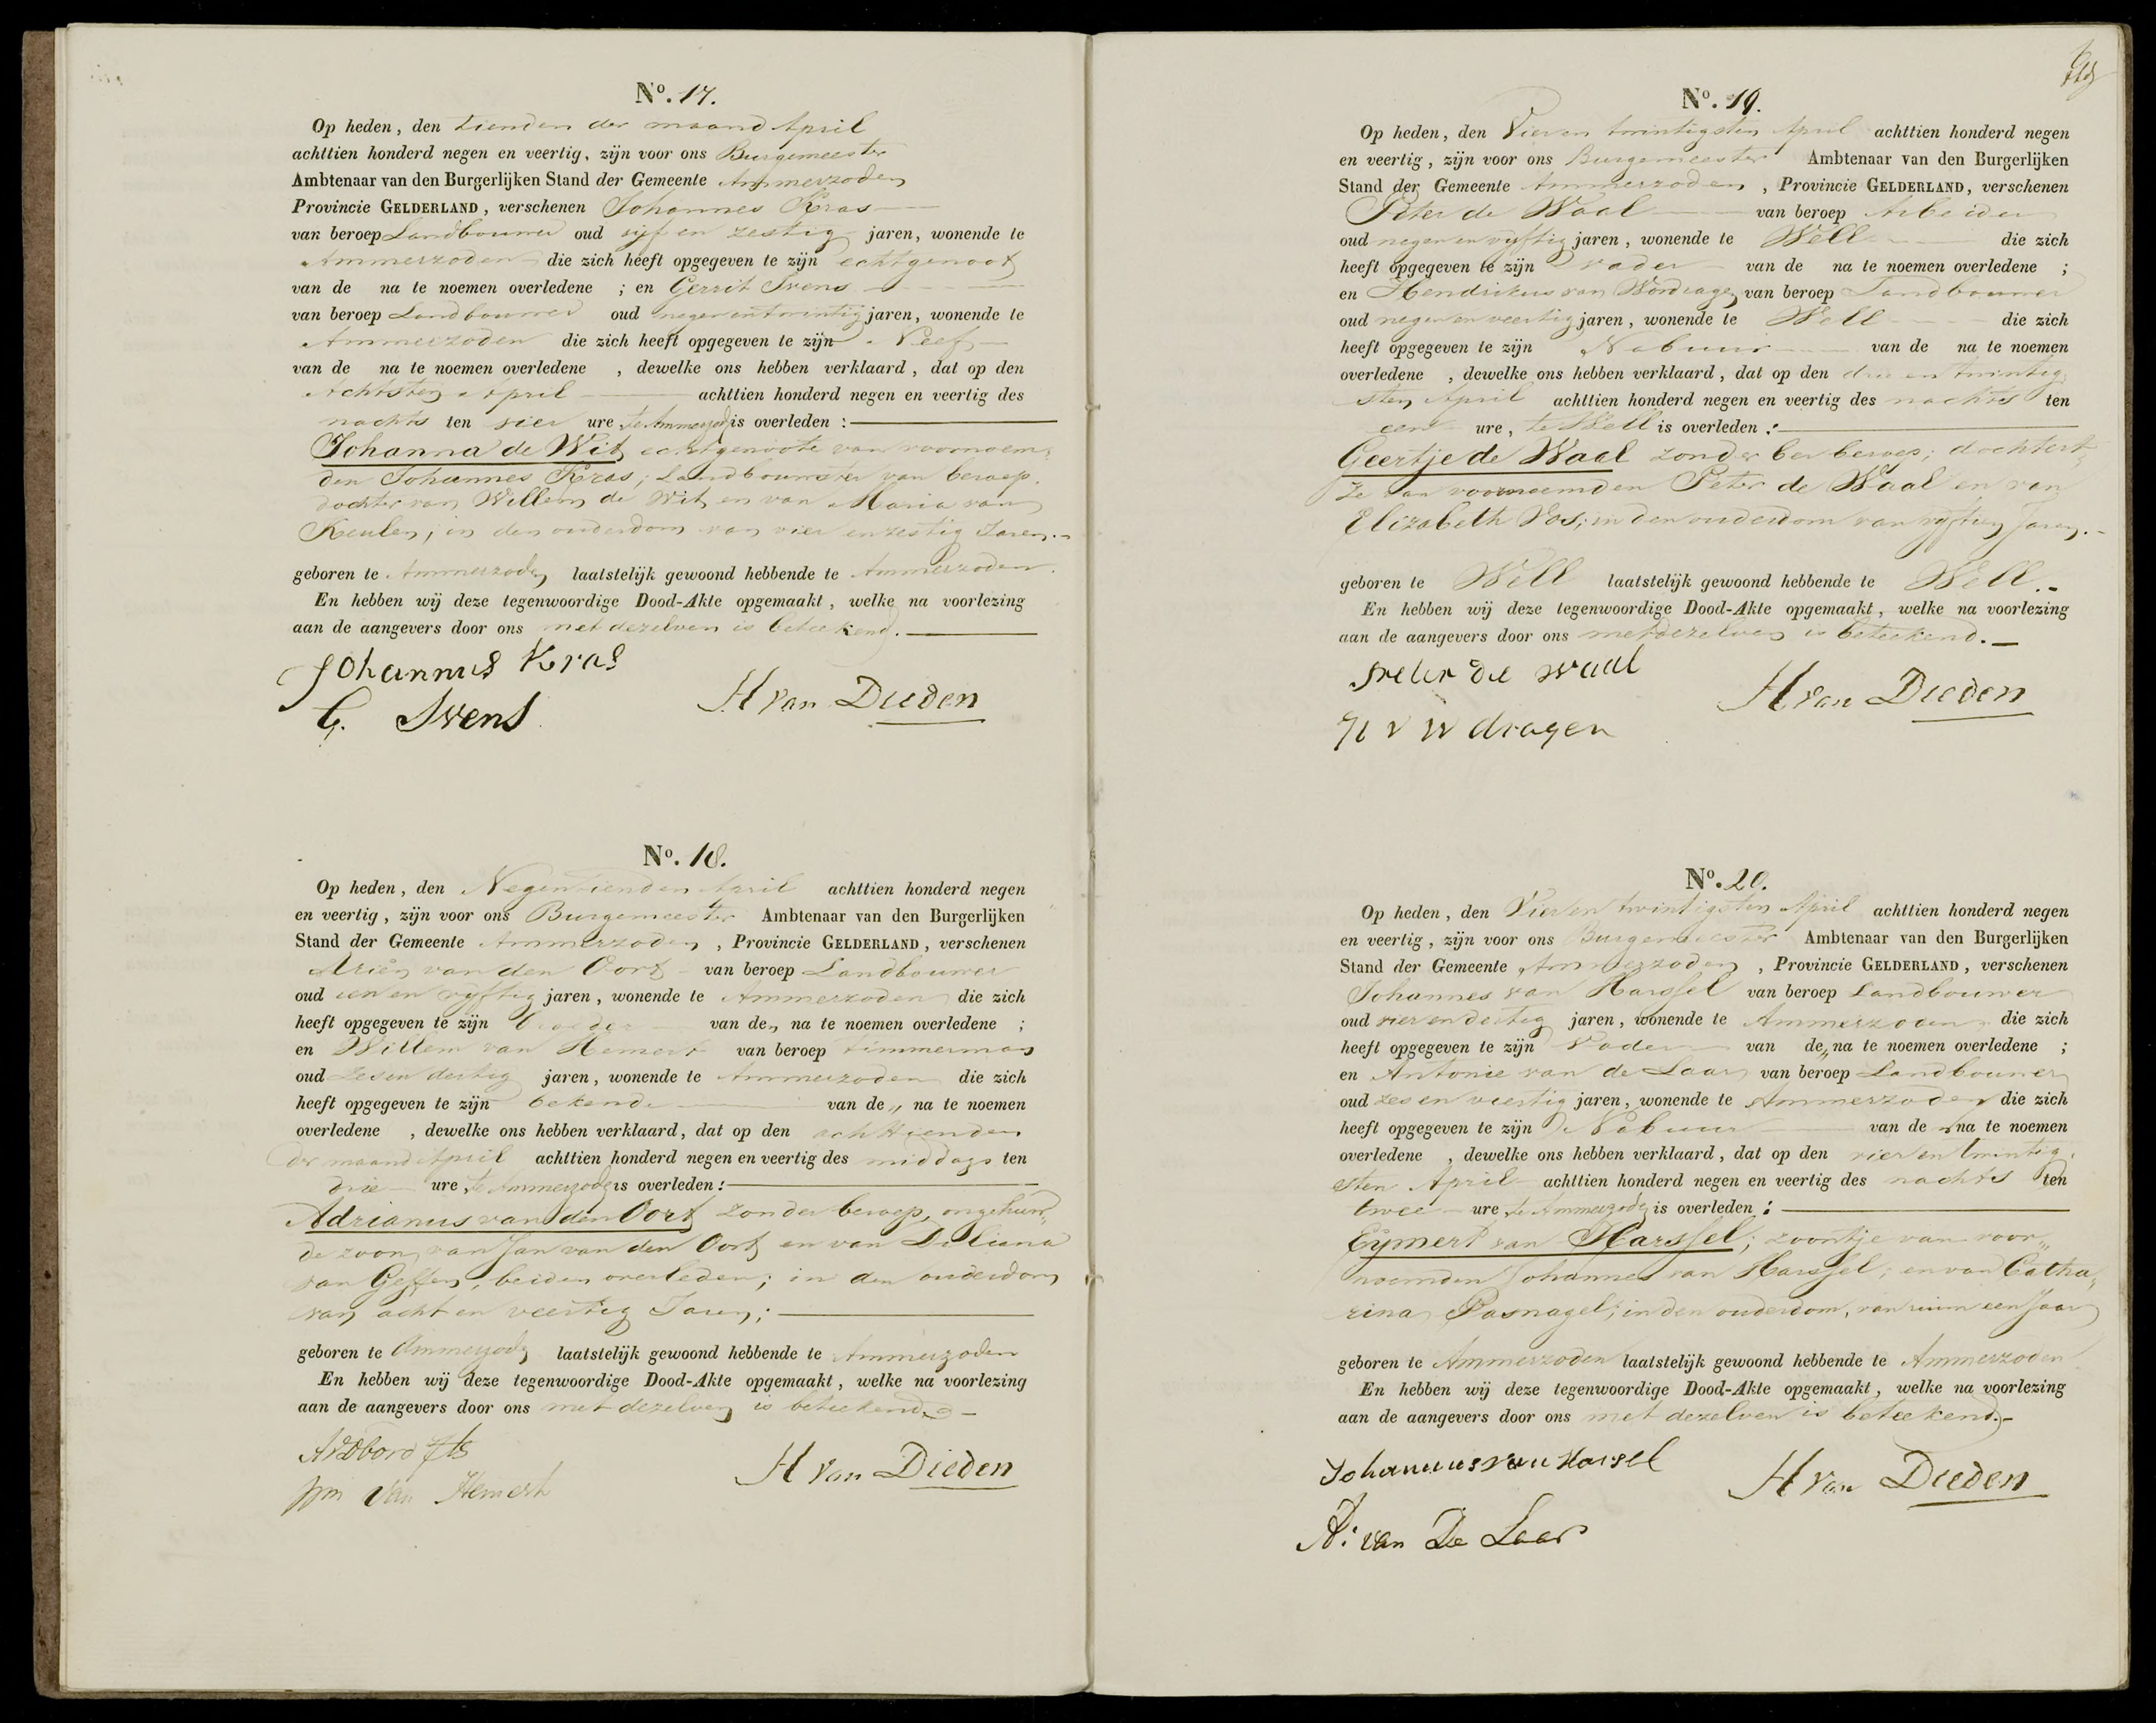 No. 17.
Op heden, den tienden der maand April
achttien honderd negen en veertig, zijn voor ons Burgemeester
Ambtenaar van den Burgerlijken Stand der Gemeente Ammerzoden
Provincie GELDERLAND, verschenen Johannes Kras
van beroep Landbouwer oud vijf en zestig jaren, wonende te
Ammerzoden die zich heeft opgegeven te zijn echtgenoot
van de na te noemen overledene ; en Gerrit Svens
van beroep Landbouwer oud negenentwintig jaren, wonende te
Ammerzoden die zich heeft opgegeven te zijn Neef
van de na te noemen overledene , dewelke ons hebben verklaard, dat op den
Achtsten April achttien honderd negen en veertig des
nachts ten vier ure, te Ammerzod is overleden :
Johanna de Wit, echtgenoote van voornoem,
den Johannes Kras; Landbouwster van beroep.
dochter van Willem de Wit, en van Maria van
Keulen; in den ouderdom van vier en zestig Jaren.-
geboren te Ammerzoden laatstelijk gewoond hebbende te Ammerzoden.
En hebben wij deze tegenwoordige Dood-Akte opgemaakt, welke na voorlezing
aan de aangevers door ons met dezelven is beteekend.
Johannus Kras
G. Svens
H van Dieden
No. 18.
Op heden, den Negentienden April achttien honderd negen
en veertig, zijn voor ons Burgemeester Ambtenaar van den Burgerlijken
Stand der Gemeente Ammerzoden, Provincie GELDERLAND, verschenen
Ariën van den Oort van beroep Landbouwer
oud een en vyftig jaren, wonende te Ammerzoden die zich
heeft opgegeven te zijn broeder van de„ na te noemen overledene ;
en Willem van Hemert van beroep timmerman
oud zes en dertig jaren, wonende te Ammerzoden die zich
heeft opgegeven te zijn bekende van de „ na te noemen
overledene , dewelke ons hebben verklaard, dat op den achttienden
der maand April achttien honderd negen en veertig des middags ten
drie ure, te Ammerzod is overleden :
Adrianus van den Oort, zonder beroep, ongehuw„
de zoon, van Jan van den Oort, en van Deliana
van Geffen, beiden overleden; in den ouderdom
van acht en veertig Jaren;
geboren te Ammerzoden laatstelijk gewoond hebbende te Ammerzoden
En hebben wij deze tegenwoordige Dood-Akte opgemaakt, welke na voorlezing
aan de aangevers door ons met dezelven is beteekend.
Wm van Hemert
H van Dieden
No. 19.
Op heden, den Vier en twintigsten April achttien honderd negen
en veertig, zijn voor ons Burgemeester Ambtenaar van den Burgerlijken
Stand der Gemeente Ammerzoden, Provincie GELDERLAND, verschenen
Peter de Waal van beroep Arbeider
oud negen en vyftig jaren, wonende te Well die zich
heeft opgegeven te zijn vader van de na te noemen overledene ;
en Hendrikus van Wordragen van beroep Landbouwer
oud negen en veertig jaren, wonende te Well die zich
heeft opgegeven te zijn Nabuur van de na te noemen
overledene , dewelke ons hebben verklaard, dat op den drie en twintig
sten April achttien honderd negen en veertig des nachts ten
een ure, te Well is overleden :
Geertje de Waal zonder ber beroep; dochtert„
je van voornoemden Peter de Waal en van
Elizabeth Vos; in den ouderdom van vyftien Jaren.-
geboren te Well laatstelijk gewoond hebbende te Well.-
En hebben wij deze tegenwoordige Dood-Akte opgemaakt, welke na voorlezing
aan de aangevers door ons met dezelven is beteekend.
Peter de Waal
H v W dragen
H van Dieden
No. 20.
Op heden, den Vier en twintigsten April achttien honderd negen
en veertig, zijn voor ons Burgemeester Ambtenaar van den Burgerlijken
Stand der Gemeente Ammerzoden, Provincie GELDERLAND, verschenen
Johannes van Harssel van beroep Landbouwer
oud vier en dertig jaren, wonende te Ammerzoden die zich
heeft opgegeven te zijn Vader van de„ na te noemen overledene ;
en Antonie van de Laar, van beroep Landbouwer
oud zes en veertig jaren, wonende te Ammerzoden die zich
heeft opgegeven te zijn Nabuur van de „ na te noemen
overledene , dewelke ons hebben verklaard, dat op den vier en twintig,
sten April achttien honderd negen en veertig des nachts ten
twee ure, te Ammerzod is overleden :
Eymert van Harssel; zoontje van voor„
noemden Johannes van Harssel; en van Catha„
rina Pasnagel; in den ouderdom, van ruim een Jaar
geboren te Ammerzoden laatstelijk gewoond hebbende te Ammerzoden
En hebben wij deze tegenwoordige Dood-Akte opgemaakt, welke na voorlezing
aan de aangevers door ons met dezelven is beteekend.-
Johannus van Harsel
A: van De Laar
H van Dieden